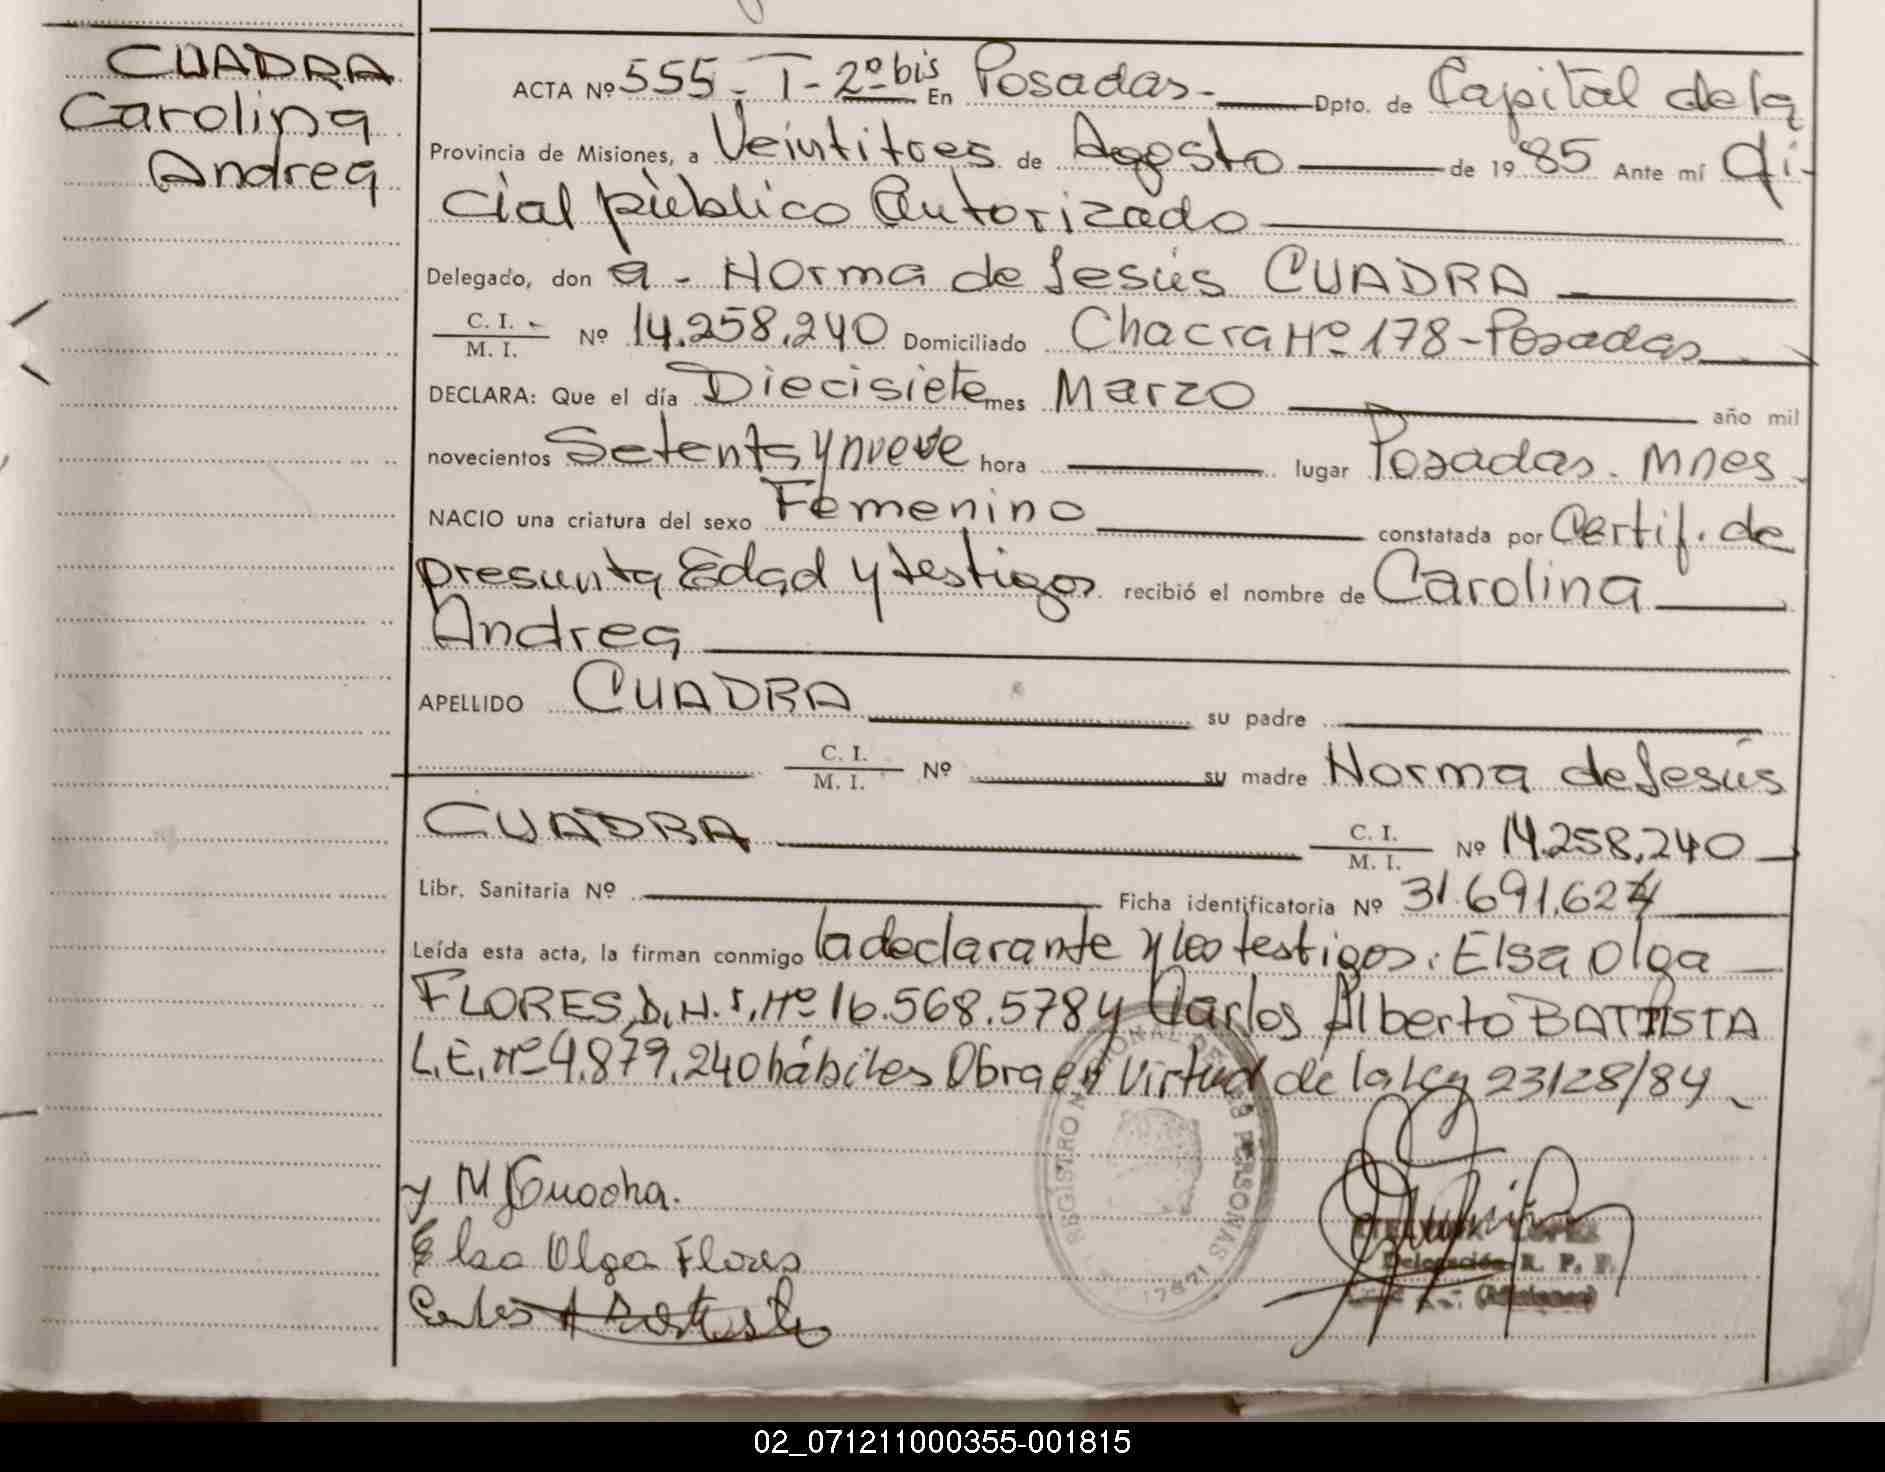 CUADRA
Carolina
Andrea
ACTA Nº 555. T- 2º bis En Posadas.- Dpto. de Capital de la
Provincia de Misiones, a Veintitres de Agosto de 1985 Ante mí Ofi-
cial pùblico Autorizado
Delegado, don a - Norma de Jesús CUADRA
C. I. - / M. I. Nº 14.258.240 Domiciliado Chacra Nº 178 - Posadas
DECLARA: Que el día Diecisiete mes Marzo año mil
novecientos Setenta y nueve hora lugar Posadas. Mnes.
NACIO una criatura del sexo Femenino constatada por Certif. de
presunta Edad y testigos. recibió el nombre de Carolina
Andrea
APELLIDO CUADRA su padre
C. I. / M. I. Nº su madre Norma de Jesús
CUADRA C. I. / M. I. Nº 14.258.240
Libr. Sanitaria Nº Ficha identificatoria Nº 31.691.624
Leída esta acta, la firman conmigo la declarante y los testigos: Elsa Olga
FLORES D.N.I. Nº 16.568.578 y Carlos Alberto BATTISTA
L.E. Nº 4.879.240 hábiles Obra en Virtud de la Ley 23128/84
REGISTRO NACIONAL DE LAS PERSONAS
17621
Elsa Olga Flores
LOPEZ
Delegación R. P. P.
(Misiones)
02_071211000355-001815